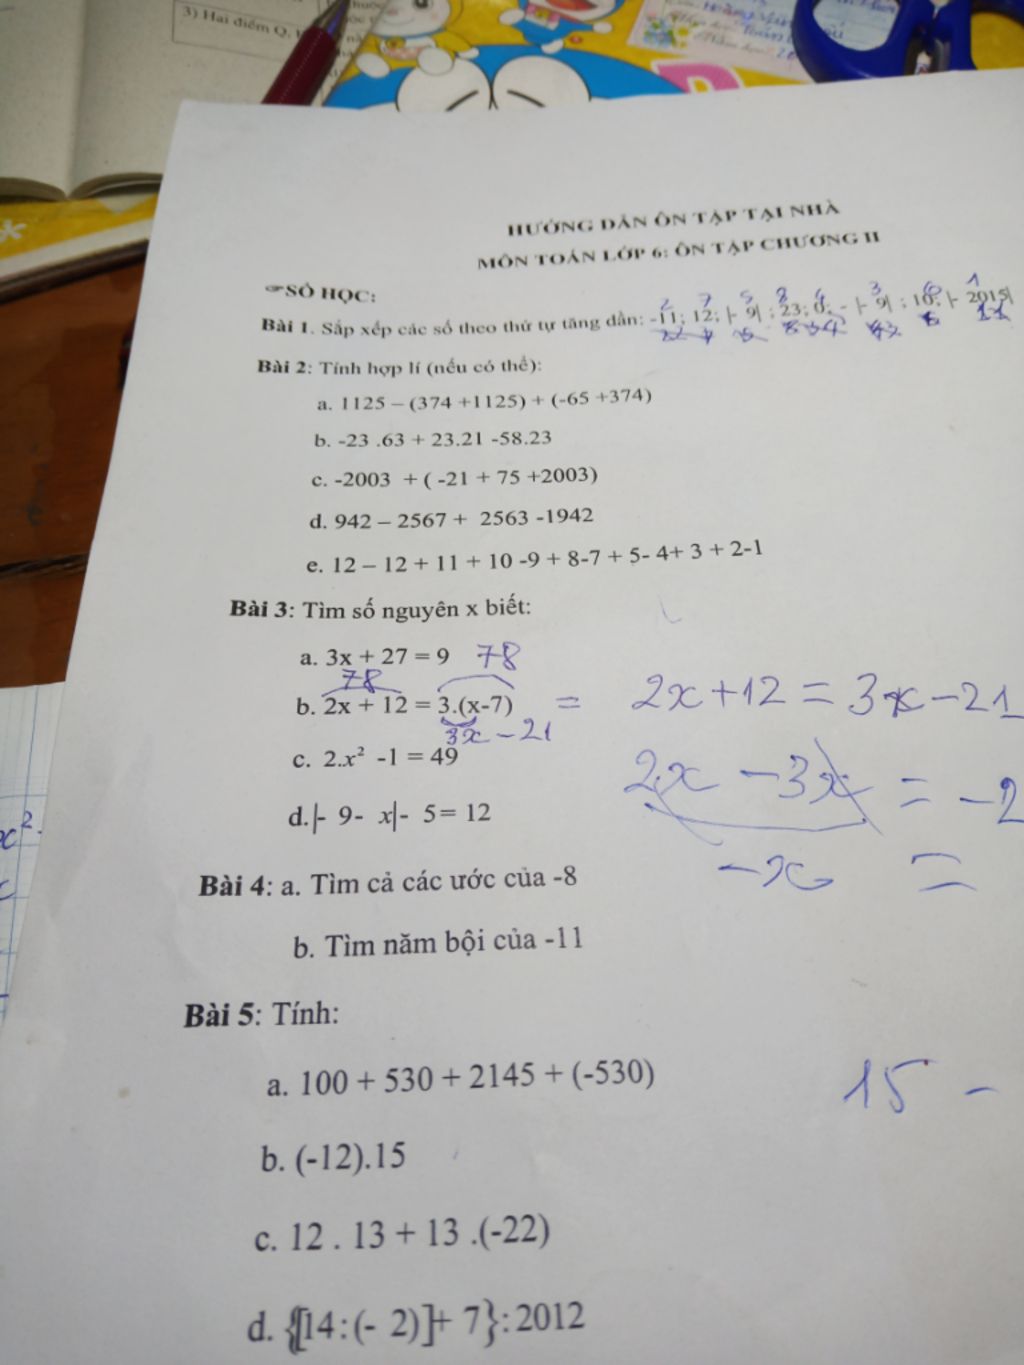 3) Hai điểm Q,
HƯỚNG DẪN ÔN TẬP TẠI NHÀ
MÔN TOÁN LỚP 6: ÔN TẬP CHƯƠNG II
☞SỐ HỌC:
2 7 5 8 4 3 6 1
Bài 1. Sắp xếp các số theo thứ tự tăng dần: -11; 12; |- 9| ; 23; 0; - |- 9| ; 10; |- 2015|
Bài 2: Tính hợp lí (nếu có thể):
a. 1125 – (374 +1125) + (-65 +374)
b. -23 .63 + 23.21 -58.23
c. -2003 + ( -21 + 75 +2003)
d. 942 – 2567 + 2563 -1942
e. 12 – 12 + 11 + 10 -9 + 8-7 + 5- 4+ 3 + 2-1
Bài 3: Tìm số nguyên x biết:
a. 3x + 27 = 9 78
78
b. 2x + 12 = 3.(x-7) = 2x+12 = 3x-21
3x - 21
c. 2.x² -1 = 49
2x - 3x = -2
d.|- 9- x|- 5= 12
x².
-x =
Bài 4: a. Tìm cả các ước của -8
b. Tìm năm bội của -11
Bài 5: Tính:
a. 100 + 530 + 2145 + (-530)
15 -
b. (-12).15
c. 12 . 13 + 13 .(-22)
d. {[14:(- 2)]+ 7}:2012